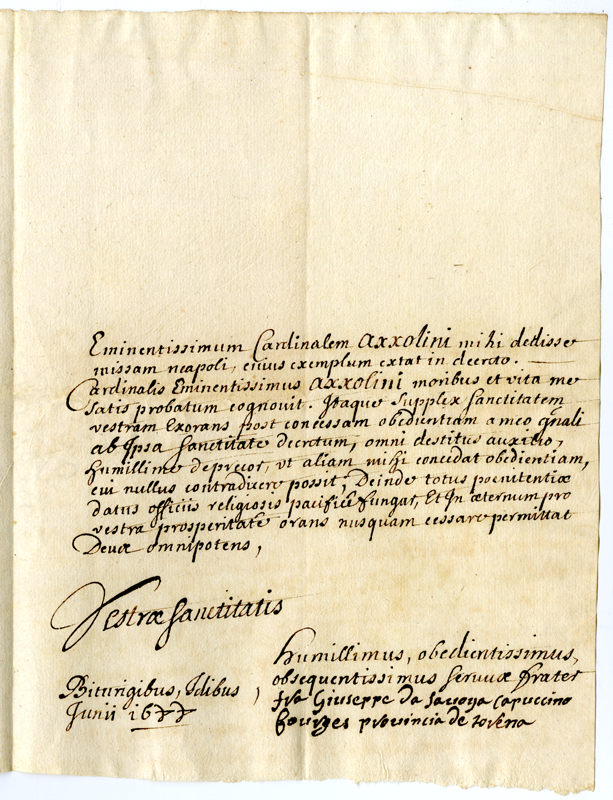 Eminentissimum Cardinalem Axxolini mihi dedisse
missam neapoli, cuius exemplum extat in decreto.
Cardinalis Eminentissimus Axxolini moribus et vita me
satis probatum cognouit. Itaque supplex sanctitatem
vestram Exorans post concessam obedientiam a meo gnâli
ab Ipsa sanctitate decretum, omni destitus auxilio,
humillime deprecor, vt aliam mihi concedat obedientiam,
cui nullus contradicere possit, Deinde totus poenitentiæ
datus officiis religiosis pacificè fungar, Et In æternum pro
vestra prosperitate orans nusquam cessare permittat
Deus omnipotens,
Vestræ Sanctitatis
Humillimus, obedientissimus,
obsequentissimus servus frater
fra Giuseppe da savoya capuccino
bourges provincia de torena
Biturigibus, Idibus
Junii 1677